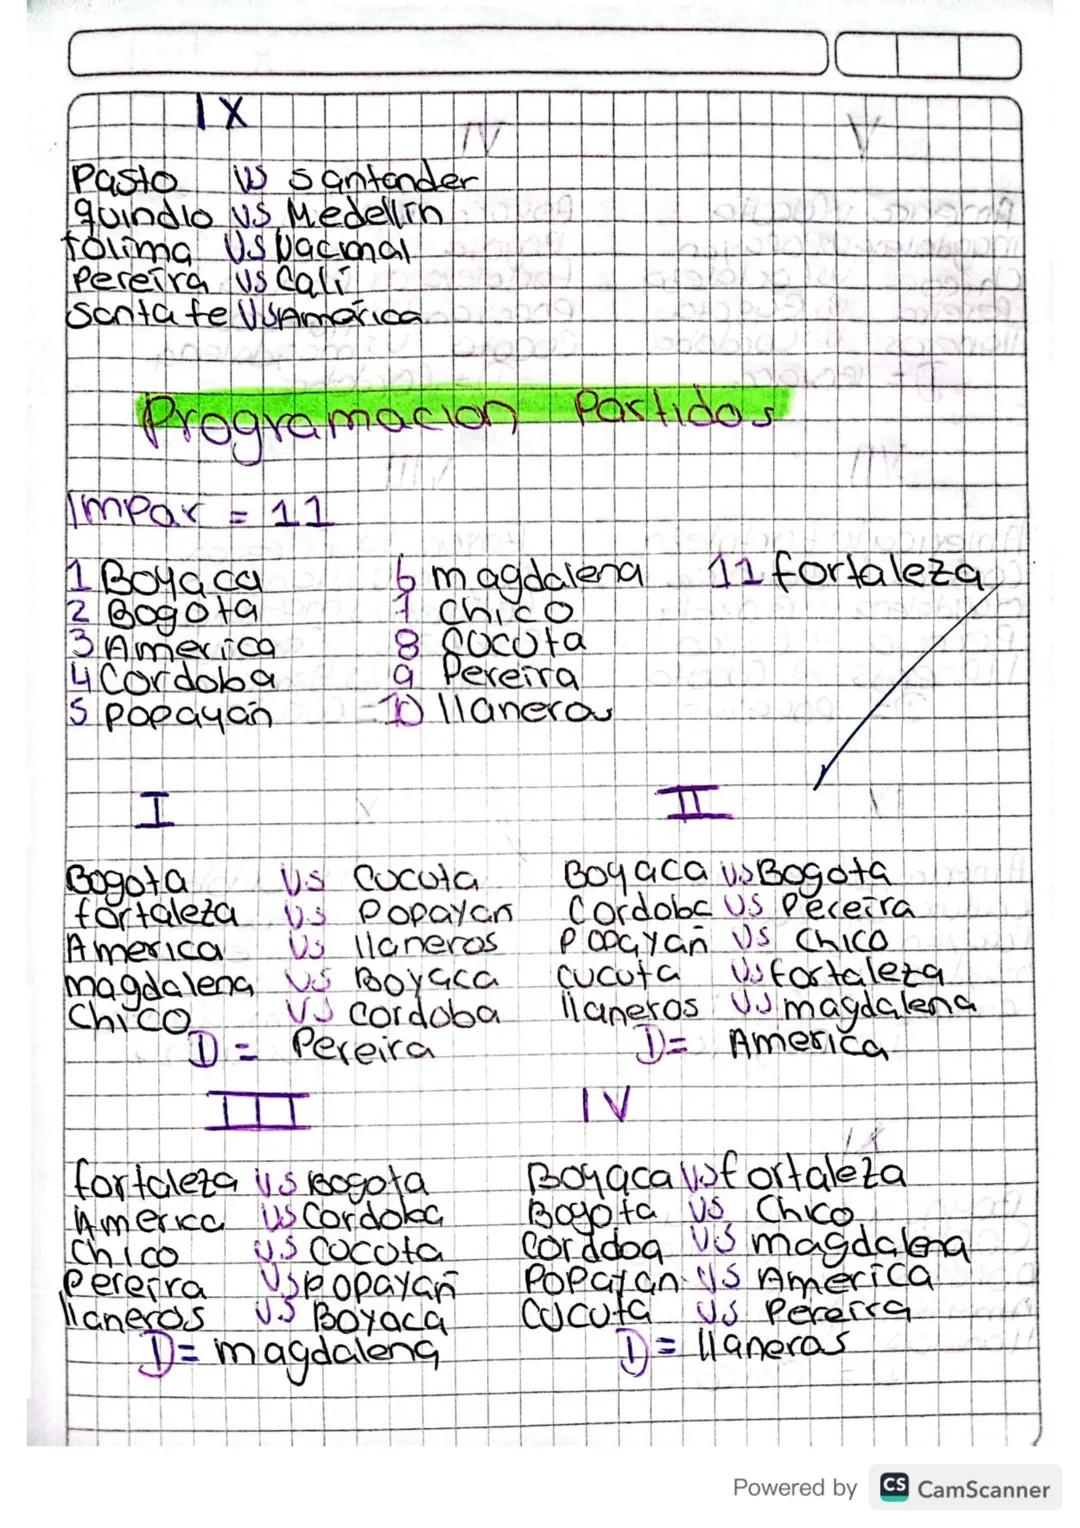 IX
Pasto vs santander
quindio vs Medellin
tolima vs Nacional
Pereira vs Cali
Santa fe vs America
Programacion Partidos
Impar = 11
1 Boyaca 6 magdalena 11 fortaleza
2 Bogota 7 chico
3 America 8 cucuta
4 Cordoba 9 Pereira
5 popayan 10 llaneros
I
Bogota vs Cucuta
fortaleza vs Popayan
America vs llaneros
magdalena vs Boyaca
Chico vs Cordoba
D = Pereira
II
Boyaca vs Bogota
Cordoba vs Pereira
Popayan vs Chico
cucuta vs fortaleza
llaneros vs magdalena
D= America
III
fortaleza vs Bogota
America vs Cordoba
Chico vs Cucuta
Pereira vs Popayan
llaneros vs Boyaca
D= magdalena
IV
Boyaca vs fortaleza
Bogota vs Chico
Corddoa vs magdalena
Popayan vs America
Cucuta vs Pereira
D= llaneros
Powered by CS CamScanner